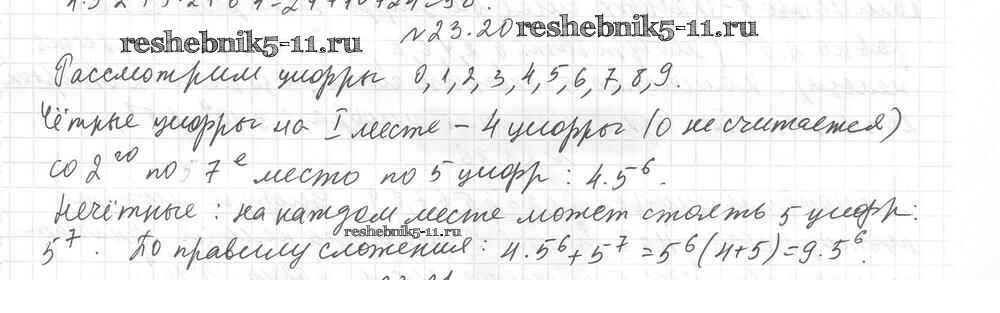 reshebnik5-11.ru №23.20 reshebnik5-11.ru
Рассмотрим цифры 0, 1, 2, 3, 4, 5, 6, 7, 8, 9.
Чётные цифры на I месте – 4 цифры (0 не считается)
со 2го по 7е место по 5 цифр : 4·5⁶.
Нечётные : на каждом месте может стоять 5 цифр:
reshebnik5-11.ru
5⁷. По правилу сложения: 4·5⁶+5⁷=5⁶(4+5)=9·5⁶.
reshebnik5-11.ru